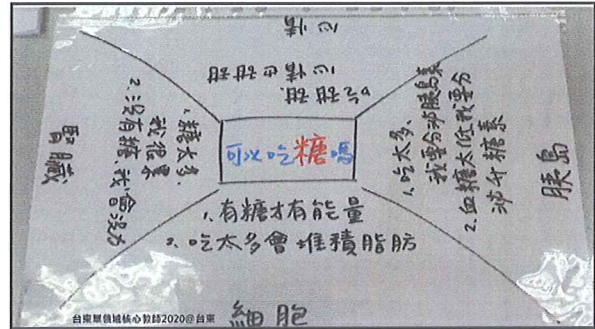 可以吃糖嗎
吃甜甜,
心情也甜甜
心情
1.糖太多,
我很累
2.沒有糖,我會沒力
腎臟
1.吃太多、
我要分泌胰島素
2.血糖太低我要分
泌升糖素
胰島
1.有糖才有能量
2.吃太多會堆積脂肪
細胞
台東單領域核心教師2020@台東